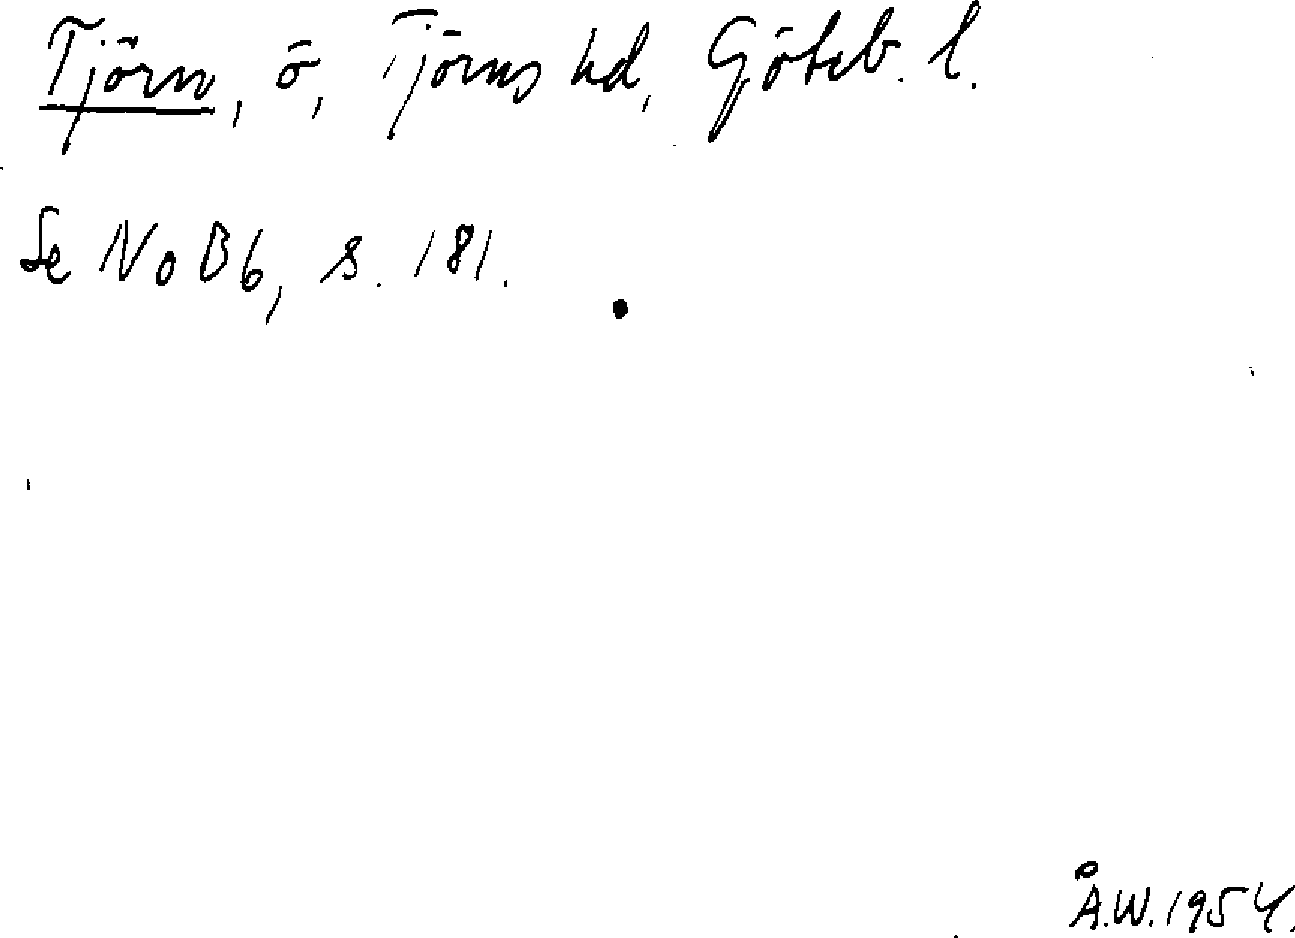 Tjörn, ö, Tjörns hd, Göteb. l.
Se NoB 6, s. 181.
Å.W. 1954.